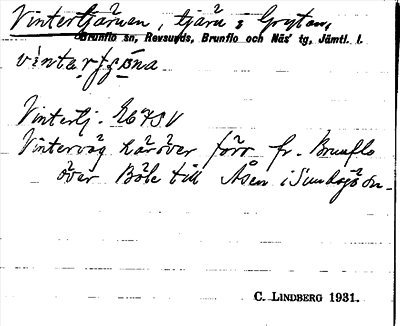 Vintertjärnen, tjärn i Grytan,
Brunflo sn, Revsunds, Brunflo och Näs' tg, Jämtl. l.
vintertj.
Vinterväg häröver förr fr. Brunflo
över Böle till Åsen i Sundsjö sn.
C. LINDBERG 1931.